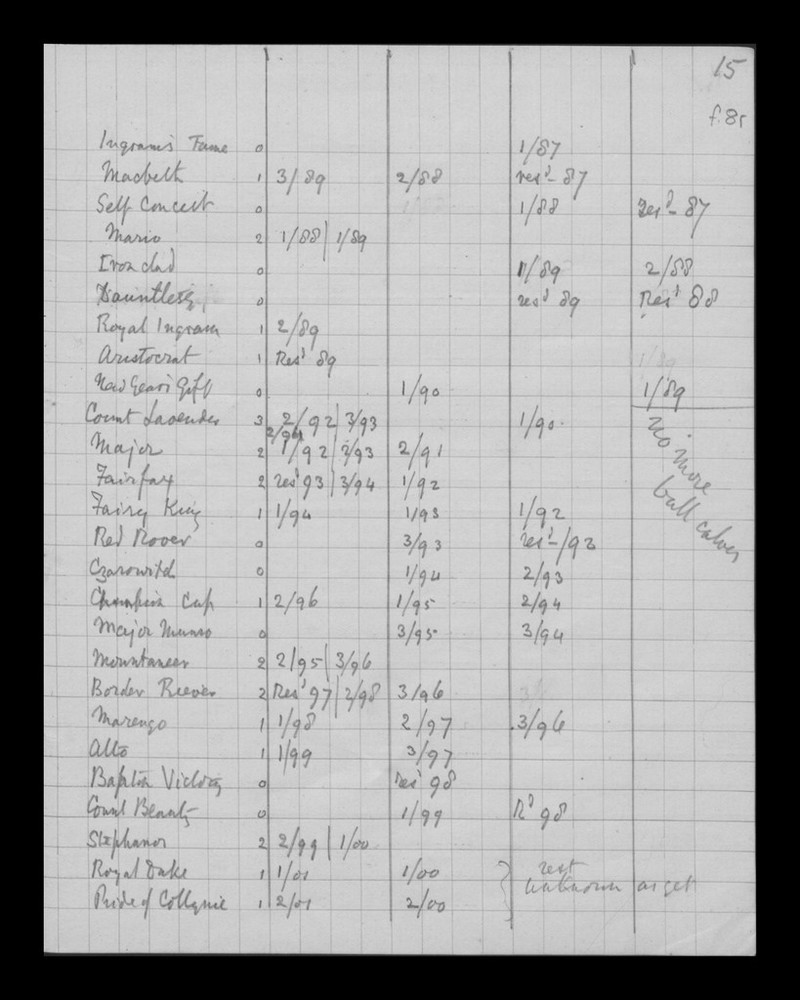 15
f. 8r
Ingram's Fame 0 1/87
Macbeth 1 3/89 2/88 resd- 87
Self Conceit 0 1/88 Resd- 87
Mario 2 1/88 | 1/89
Iron clad 0 1/89 2/88
Dauntless 0 resd 89 Resd 88
Royal Ingram 1 2/89
Aristocrat 1 Resd 89
New Year's Gift 0 1/90 1/89
Count Lavender 3 2/92 | 3/93 1/90.
2/94
Major 2 1/92 | 2/93 2/91
no more
bull calves
Fairfax 2 resd 93 | 3/94 1/92
Fairy King 1 1/94 1/93 1/92
Red Rover 0 3/93 resd-/92
Czarowitch 0 1/94 2/93
Champion Cup 1 2/96 1/95 2/94
Major Munro 0 3/95 3/94
Mountaineer 2 2/95 | 3/96
Border Riever 2 Resd 97 | 2/98 3/96
Marengo 1 1/98 2/97 3/96
Alto 1 1/99 3/97
Bapton Victory 0 Resd 98
Count Beauty 0 1/99 Rd 98
Stephanos 2 2/99 | 1/00
Royal Duke 1 1/01 1/00 rest
unknown as yet
Pride of Collynie 1 2/01 2/00